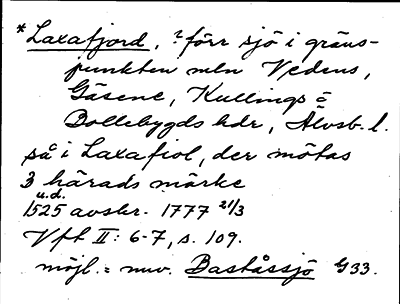 *Laxafjord, ? förr sjö i gräns-
punkten mln Vedens,
Gäsene, Kullings o
Bollebygds hdr, Älvsb. l.
så i Laxafiol, der mötas
3 härads märke
u.d.
1525 avskr. 1777 21/3
Vft II: 6-7, s. 109.
möjl. = nuv. Baståssjö G33.